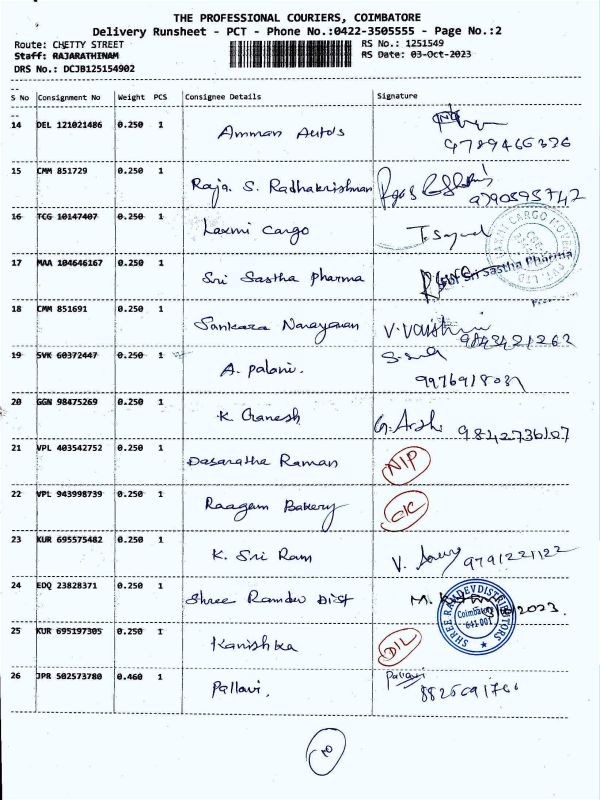 THE PROFESSIONAL COURIERS, COIMBATORE
Delivery Runsheet - PCT - Phone No.:0422-3505555 - Page No.:2
Route: CHETTY STREET RS No.: 1251549
Staff: RAJARATHINAM RS Date: 03-Oct-2023
DRS No.: DCJB125154902
S No Consignment No Weight PCS Consignee Details Signature
14 DEL 121021486 0.250 1 Amman Autos
15 CMM 851729 0.250 1 Raja. S. Radhakrishnan
16 TCG 10147407 0.250 1 Laxmi Cargo
17 MAA 104646167 0.250 1 Sri Sastha Pharma For Sri Sastha Pharma
18 CMM 851691 0.250 1 Sankara Narayanan 9843421262
19 SVK 60372447 0.250 1 A. Palani.
20 GGN 98475269 0.250 1 K. Ganesh 9842736107
21 VPL 403542752 0.250 1 Dasaratha Raman NIP
22 VPL 943998739 0.250 1 Raagam Bakery
23 KUR 695575482 0.250 1 K. Sri Ram 9791221122
24 EDQ 23828371 0.250 1 Shree Ramdev Dist SHREE RAMDEV DISTRIBUTORS Coimbatore 641 001
25 KUR 695197305 0.250 1 Kanishka DIL
26 JPR 502573780 0.460 1 Pallavi. Pallavi